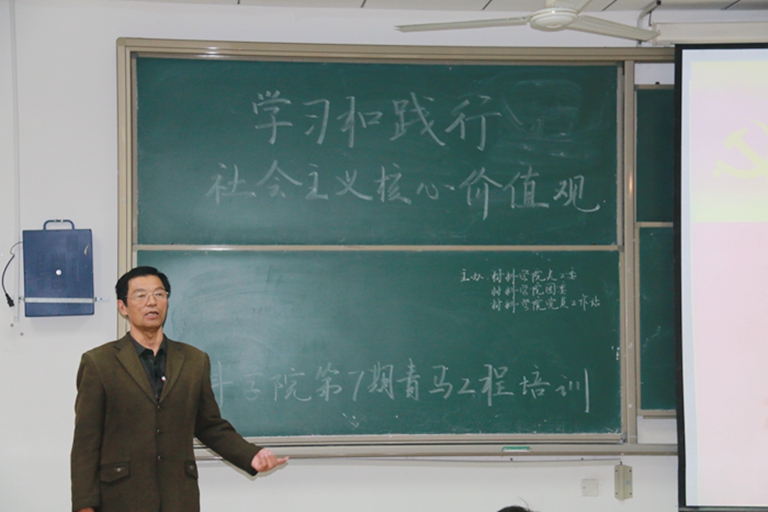 学习和践行
社会主义核心价值观
主办:材料学院关工委
材料学院团委
材料学院党员工作站
料学院第7期青马工程培训